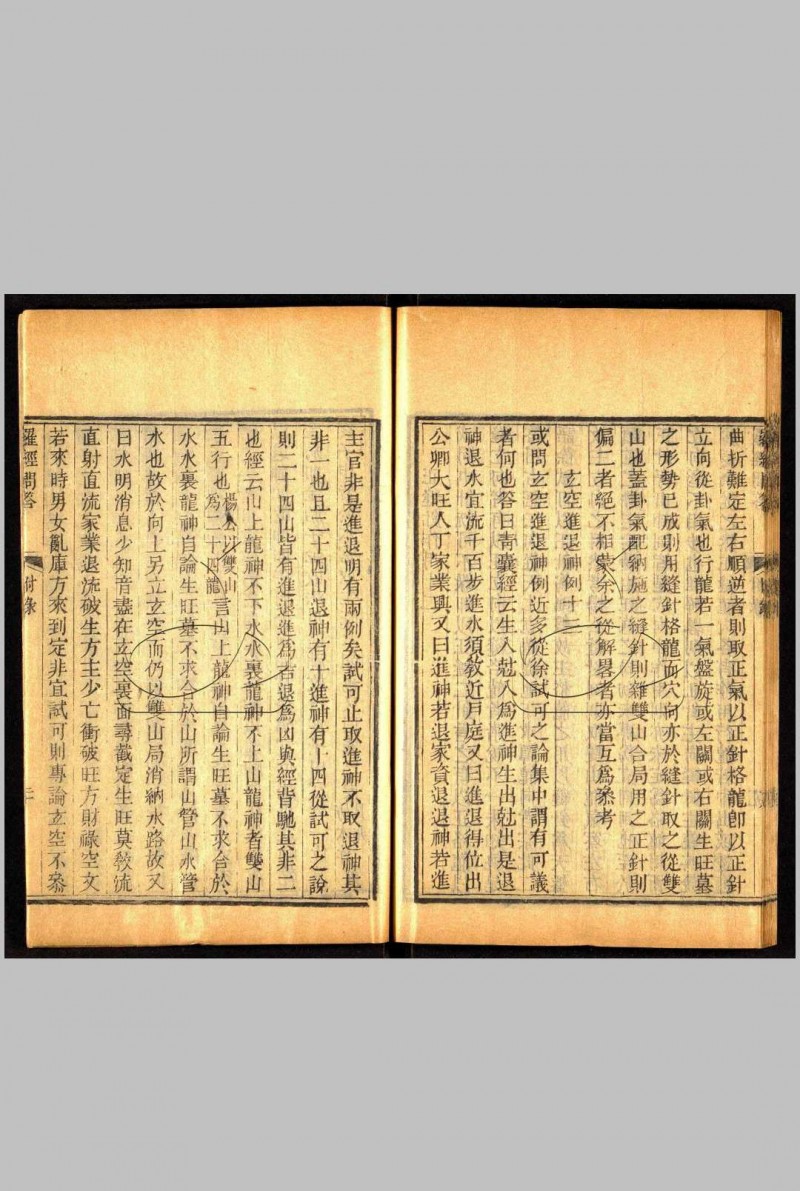 曲折難定左右順逆者則取正氣以正針格龍卽以正針
立向從卦氣也行龍若一氣盤旋或左關或右關生旺墓
之形勢已成則用縫針格龍而穴向亦於縫針取之從雙
山也葢卦氣配納施之縫針則雜雙山合局用之正針則
偏二者絕不相蒙余之從解畧者亦當互爲叅考
玄空進退神例十三
或問玄空進退神例近多從徐試可之論集中謂有可議
者何也答曰靑囊經云生入尅入爲進神生出尅出是退
神退水宜流千百步進水須敎近戶庭又曰進退得位出
公卿大旺人丁家業興又曰進神若退家資退退神若進
主官非是進退明有兩例矣試可止取進神不取退神其
非一也且二十四山退神有十進神有十四從試可之說
則二十四山皆有進退進爲吉退爲凶與經背馳其非二
也經云山上龍神不下水水裏龍神不上山龍神者雙山
五行也楊公以雙山爲二十四龍言山上龍神自論生旺墓不求合於
水水裏龍神自論生旺墓不求合於山所謂山管山水管
水也故於向上另立玄空而仍以雙山局消納水路故又
曰水明消息少知音盡在玄空裏面尋截定生旺莫敎流
直射直流家業退流破生方主少亡衝破旺方財祿空文
若來時男女亂庫方來到定非宜試可則專論玄空不叅
羅經問答
付彔